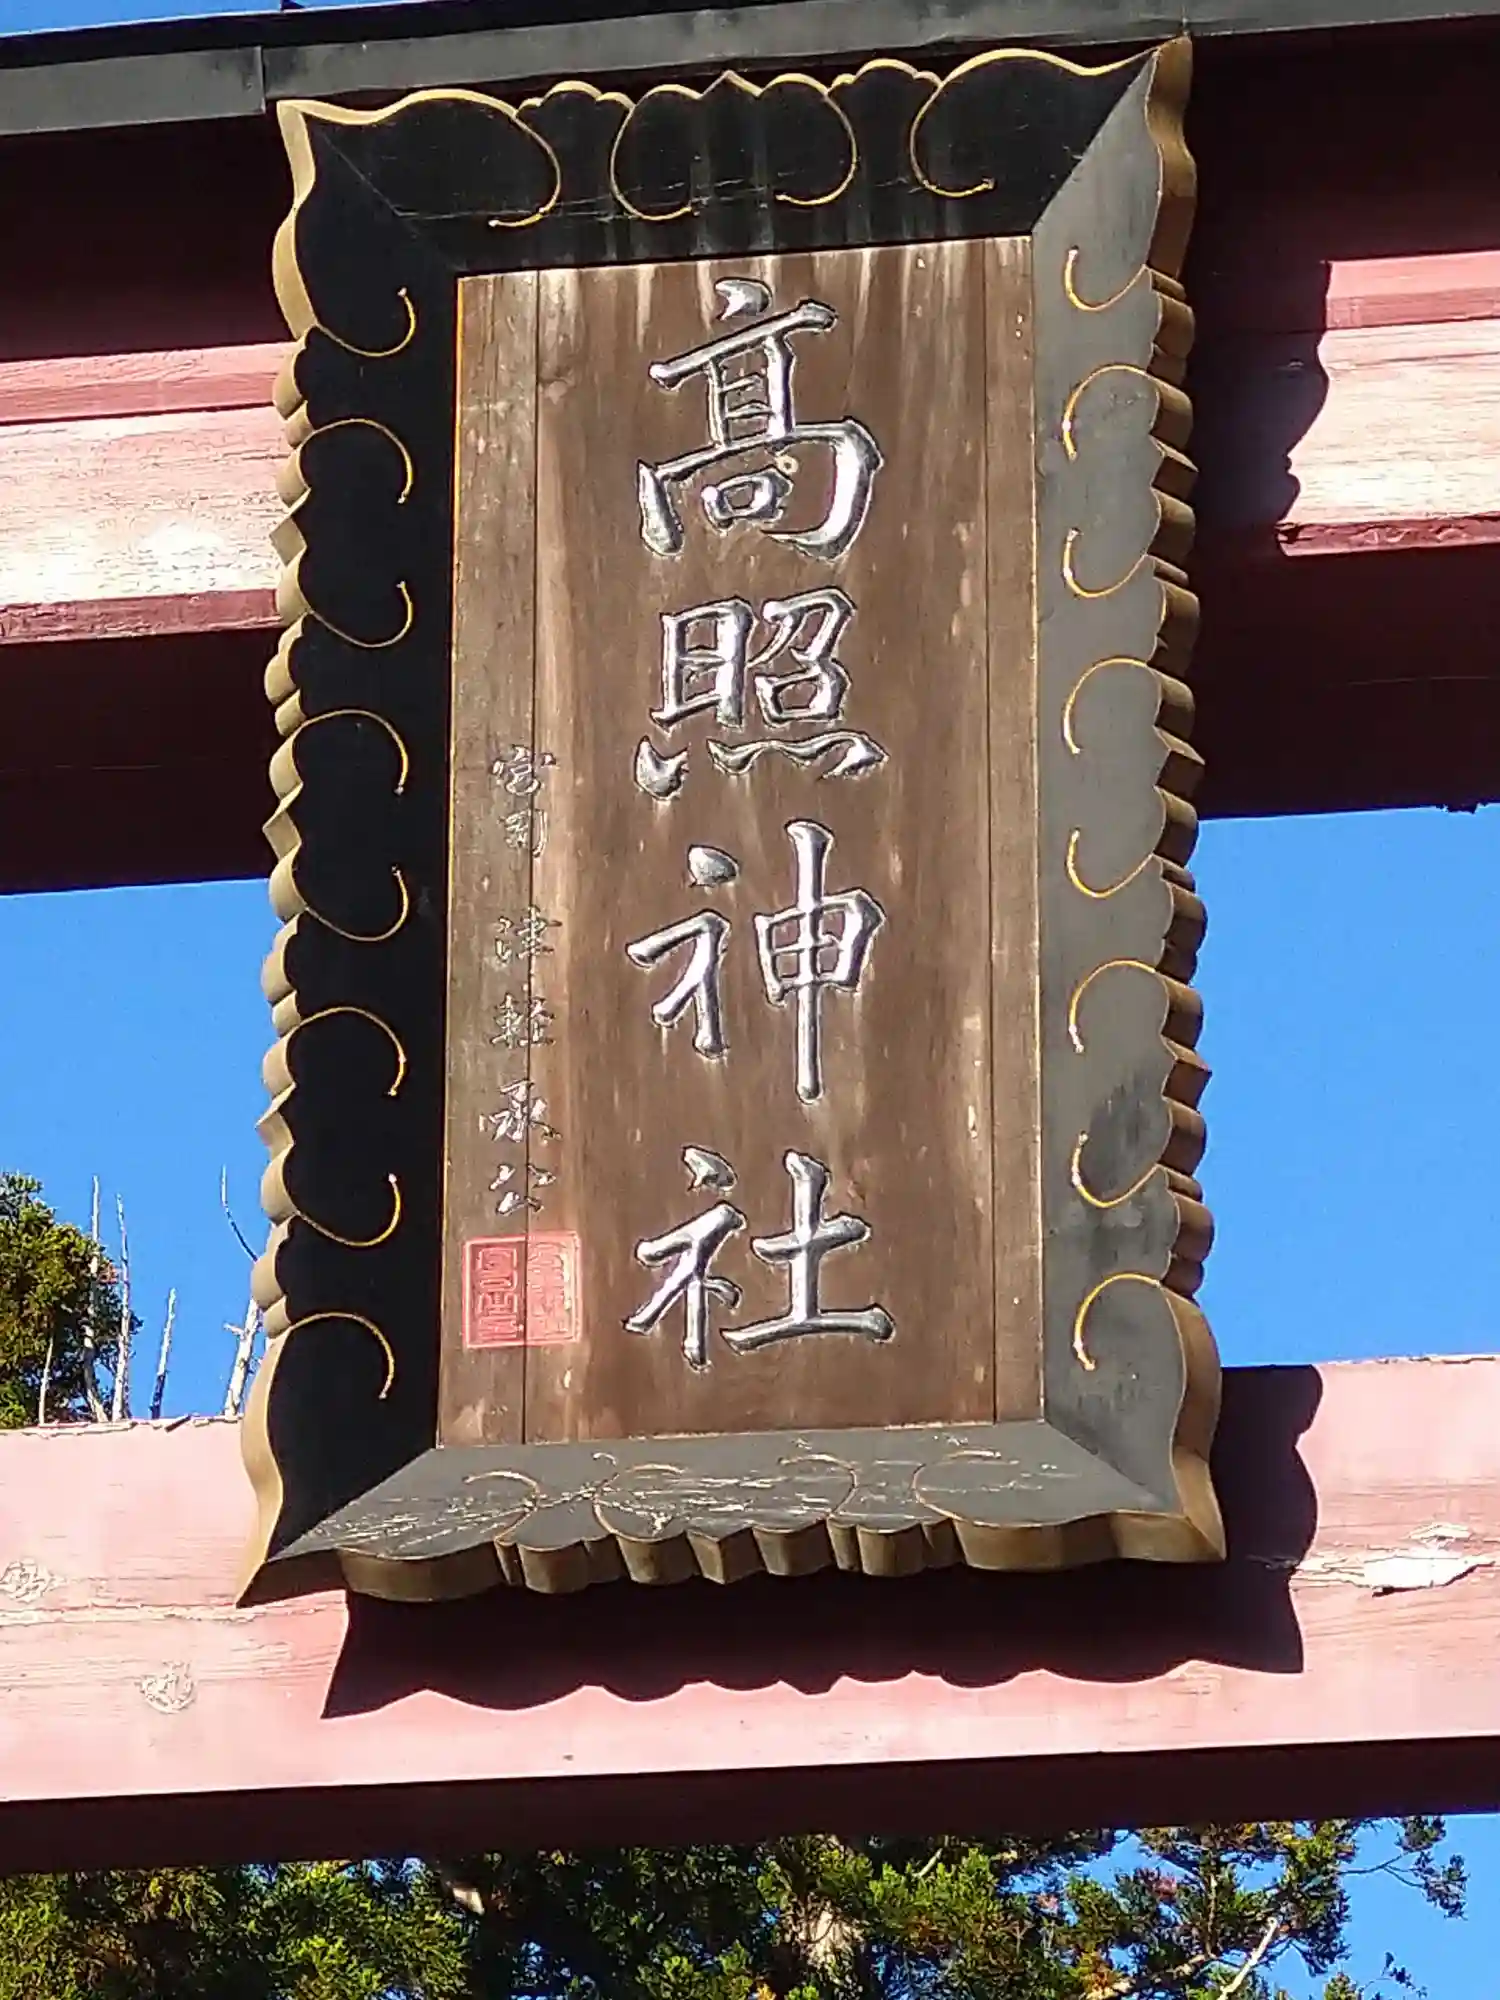 髙照神社
宮司 津軽承公